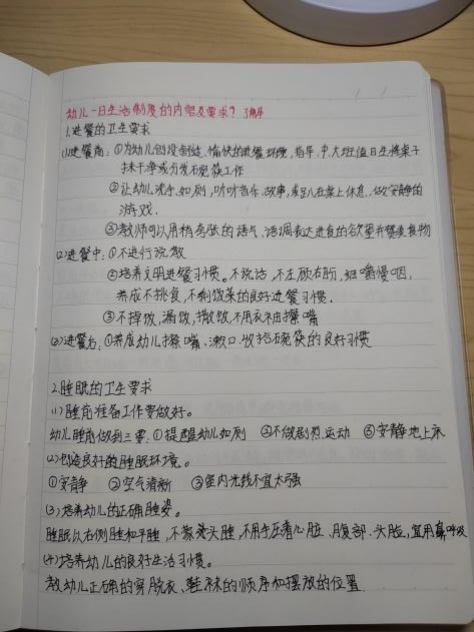 幼儿一日生活制度的内容及要求？了解
1.进餐的卫生要求
(1)进餐前：①为幼儿创设制造愉快的进餐环境，指导中、大班值日生将桌子
抹干净或分发碗筷工作
②让幼儿洗手、如厕，听听音乐、故事，或趴在桌上休息，做安静的
游戏.
③教师可以用稍夸张的语气、语调表达进食的欲望并赞美食物
(2)进餐中：①不进行说教
②培养文明进餐习惯。不说话，不左顾右盼，细嚼慢咽，
养成不挑食，不剩饭菜的良好进餐习惯.
③不掉饭，漏饭，撒饭，不用衣袖擦嘴
(3)进餐后：①养成幼儿擦嘴、漱口、收拾碗筷的良好习惯
2.睡眠的卫生要求
(1)睡前准备工作要做好。
幼儿睡前做到三要：①提醒幼儿如厕 ②不做剧烈运动 ③安静地上床
(2)创造良好的睡眠环境。
①安静 ②空气清新 ③室内光线不宜太强
(3)培养幼儿的正确睡姿。
睡眠以右侧睡和平睡，不蒙头睡，不用手压着心脏、腹部、头脸，宜用鼻呼吸
(4)培养幼儿的良好生活习惯。
教幼儿正确的穿脱衣、鞋袜的顺序和摆放的位置